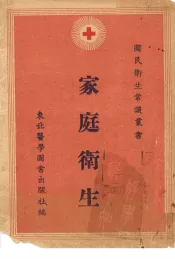 國民衛生常識叢書
家庭衛生
東北醫學圖書出版社編